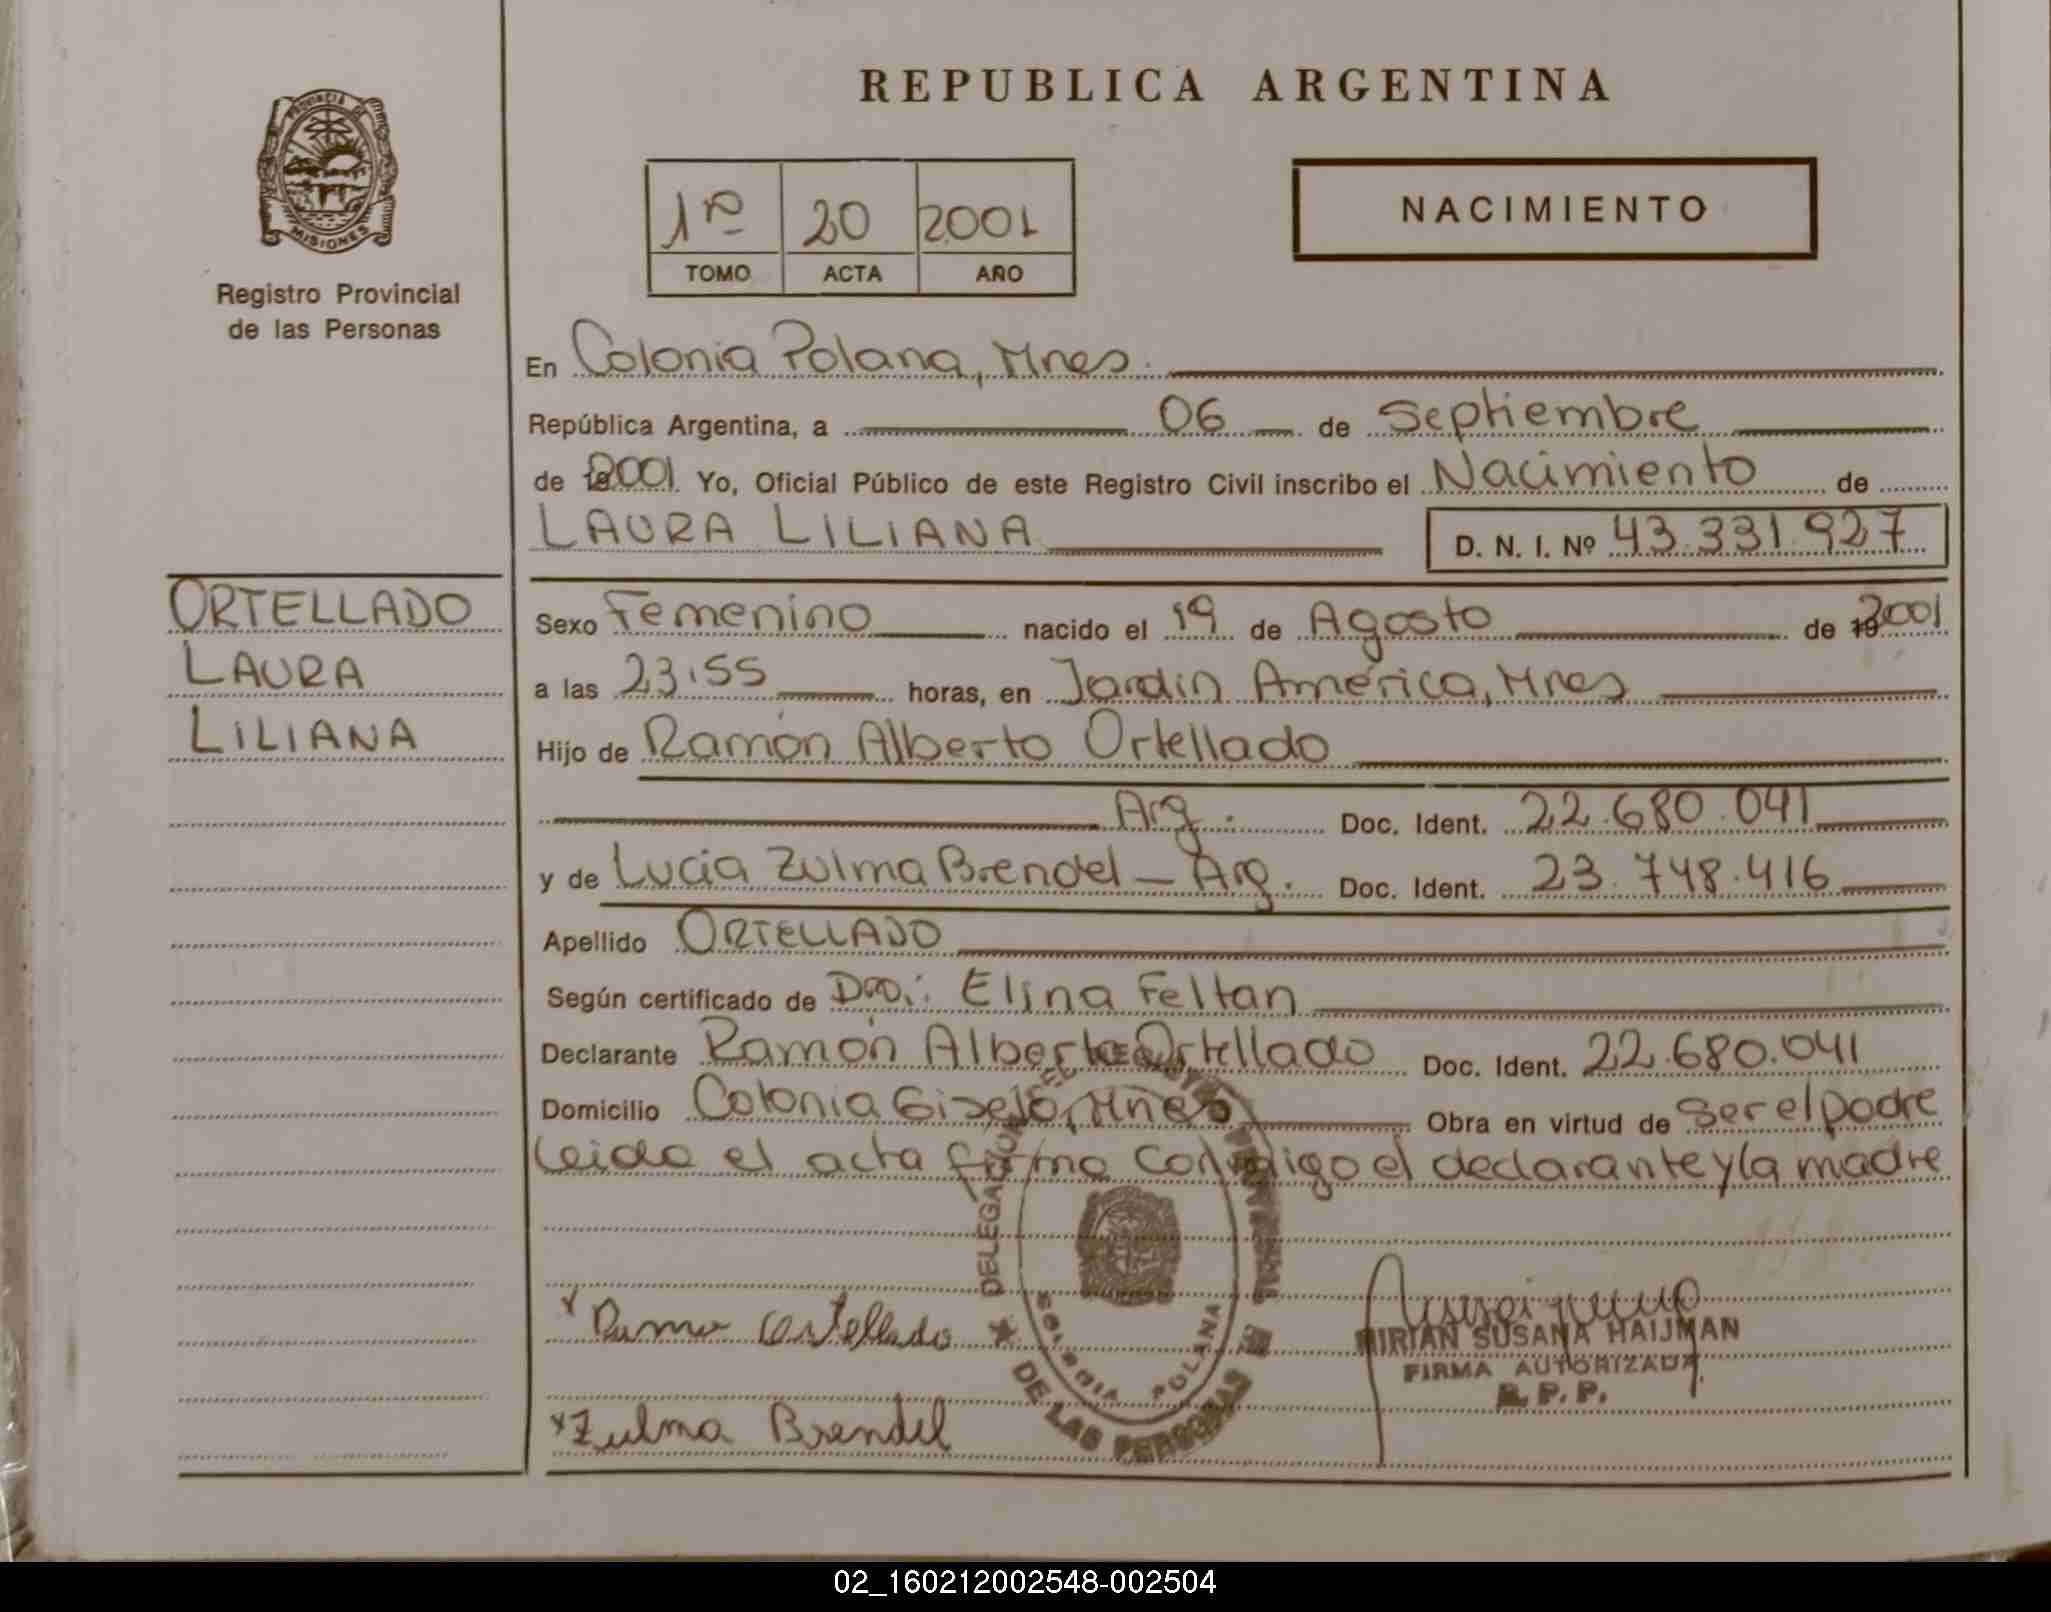 REPUBLICA ARGENTINA
PROVINCIA DE
MISIONES
Registro Provincial
de las Personas
1ro 20 2001
TOMO ACTA AÑO
NACIMIENTO
En Colonia Polana, Mnes.
República Argentina, a 06 de Septiembre
de 2001 Yo, Oficial Público de este Registro Civil inscribo el Nacimiento de
LAURA LILIANA D. N. I. Nº 43.331.927
ORTELLADO
LAURA
LILIANA
Sexo Femenino nacido el 19 de Agosto de 2001
a las 23:55 horas, en Jardín América, Mnes
Hijo de Ramón Alberto Ortellado
Arg. Doc. Ident. 22.680.041
y de Lucia Zulma Brendel - Arg. Doc. Ident. 23.748.416
Apellido ORTELLADO
Según certificado de Dra.: Elina Feltan
Declarante Ramón Alberto Ortellado Doc. Ident. 22.680.041
Domicilio Colonia Gisela, Mnes Obra en virtud de ser el padre
Leida el acta firma conmigo el declarante y la madre
x Ortellado
x Zulma Brendel
DELEGACION
DE LAS PERSONAS
COLONIA POLANA
MIRIAN SUSANA HAIJMAN
FIRMA AUTORIZADA
R.P.P.
02_160212002548-002504